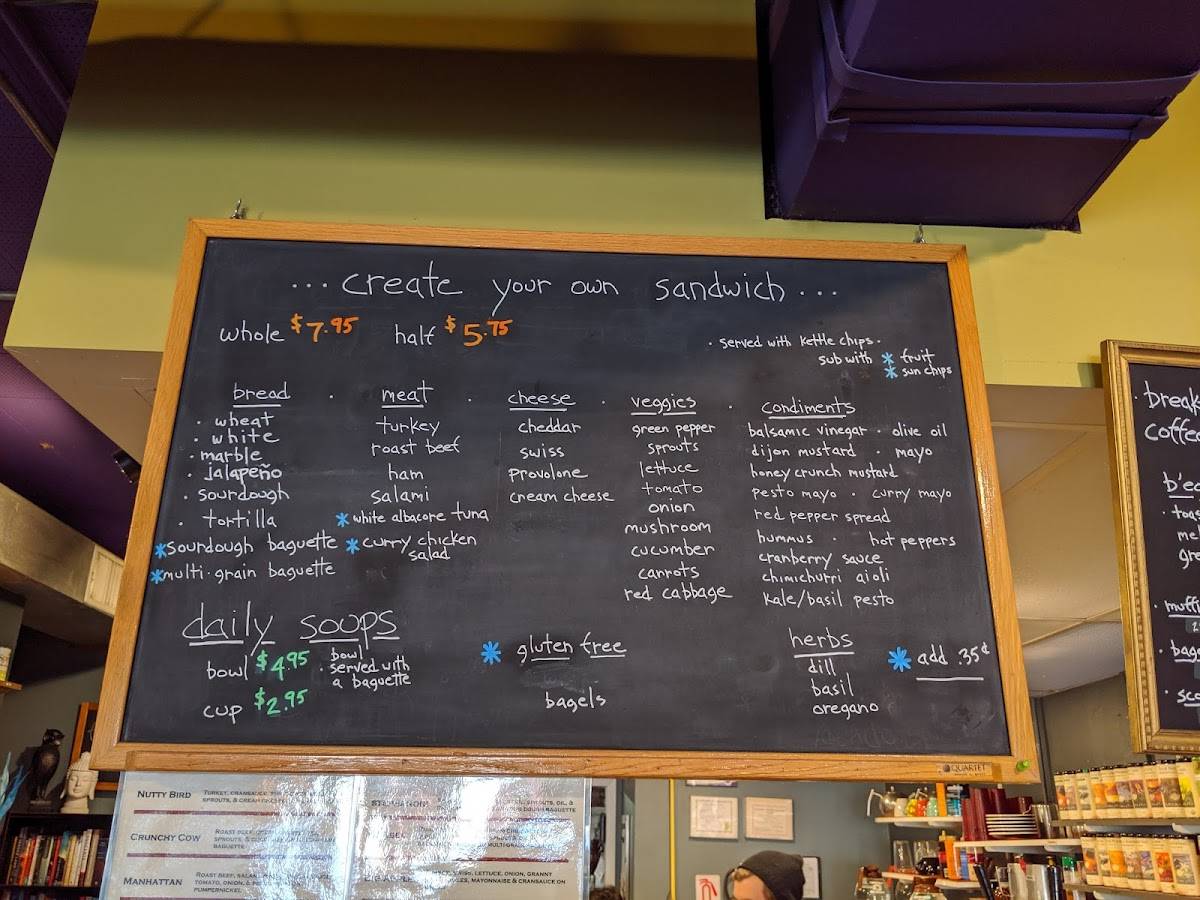 ... create your own sandwich ...
whole $7.95 half $5.75
· served with kettle chips ·
sub with * fruit
* sun chips
bread · meat · cheese · veggies · condiments
bread
· wheat
· white
· marble
· jalapeño
· sourdough
· tortilla
* sourdough baguette
* multi-grain baguette
meat
turkey
roast beef
ham
salami
* white albacore tuna
* curry chicken
salad
cheese
cheddar
swiss
provolone
cream cheese
veggies
green pepper
sprouts
lettuce
tomato
onion
mushroom
cucumber
carrots
red cabbage
condiments
balsamic vinegar · olive oil
dijon mustard · mayo
honey crunch mustard
pesto mayo · curry mayo
red pepper spread
hummus · hot peppers
cranberry sauce
chimichurri aioli
kale/basil pesto
daily soups
bowl $4.95
cup $2.95
bowl
· served with
a baguette
* gluten free
bagels
herbs
dill
basil
oregano
* add .35¢
QUARTET
Nutty Bird
Turkey, cransauce,
sprouts, & cream
Crunchy Cow
Roast beef,
sprouts, &
baguette
Manhattan
Roast beef,
tomato, onion, &
pumpernickel
sprouts, oil, &
baguette
lettuce, onion, granny
mayonnaise & cransauce on
coffee